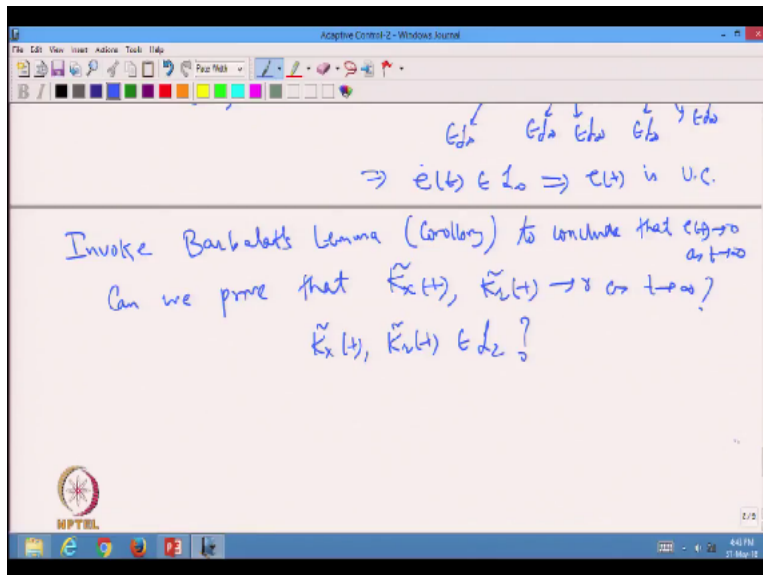 Adaptive Control-2 - Windows Journal
File Edit View Insert Actions Tools Help
Page Width
B I
∈ L∞ ∈ L∞ ∈ L∞ ∈ L∞ ∈ L∞
⇒ ė(t) ∈ L∞ ⇒ e(t) is U.C.
Invoke Barbalat's Lemma (Corollory) to conclude that e(t)→0
as t→∞
Can we prove that K̃x(t), K̃r(t) → 0 as t→∞?
K̃x(t), K̃r(t) ∈ L2 ?
NPTEL
2/5
4:43 PM
31-May-18